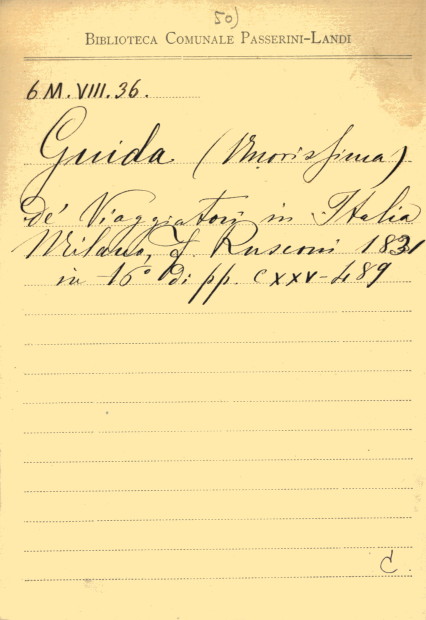 50)
BIBLIOTECA COMUNALE PASSERINI-LANDI
6 M. VIII. 36.
Guida (Nuovissima)
de' Viaggiatori in Italia
Milano, L. Rusconi 1831
in 16° di pp. CXXV-489
C.